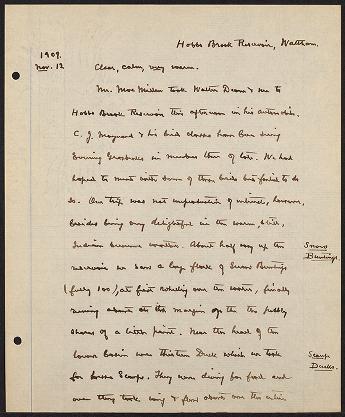 Hobbs Brook Reservoir, Waltham.
1909.
Nov. 12
Clear, calm, very warm.
Mr. MacMillan took Walter Deane & me to
Hobbs Brook Reservoir this afternoon in his automobile.
C. J. Maynard & his bird classes have been seeing
Evening Grosbeaks in numbers there of late. We had
hoped to meet with some of these birds but failed to do
so. Our trip was not unproductive of interest, however,
besides being very delightful in the warm, still,
Indian summer weather. About half way up the
reservoir we saw a large flock of Snow Buntings
Snow
Buntings.
(fully 100), at first whirling over the water, finally
running about on the margin of the pebbly
shores of a little point. Near the head of the
lower basin were thirteen Duck which we took
Scaup
Ducks.
for Lesser Scaups. They were diving for food and
once they took wing & flew above over the entire